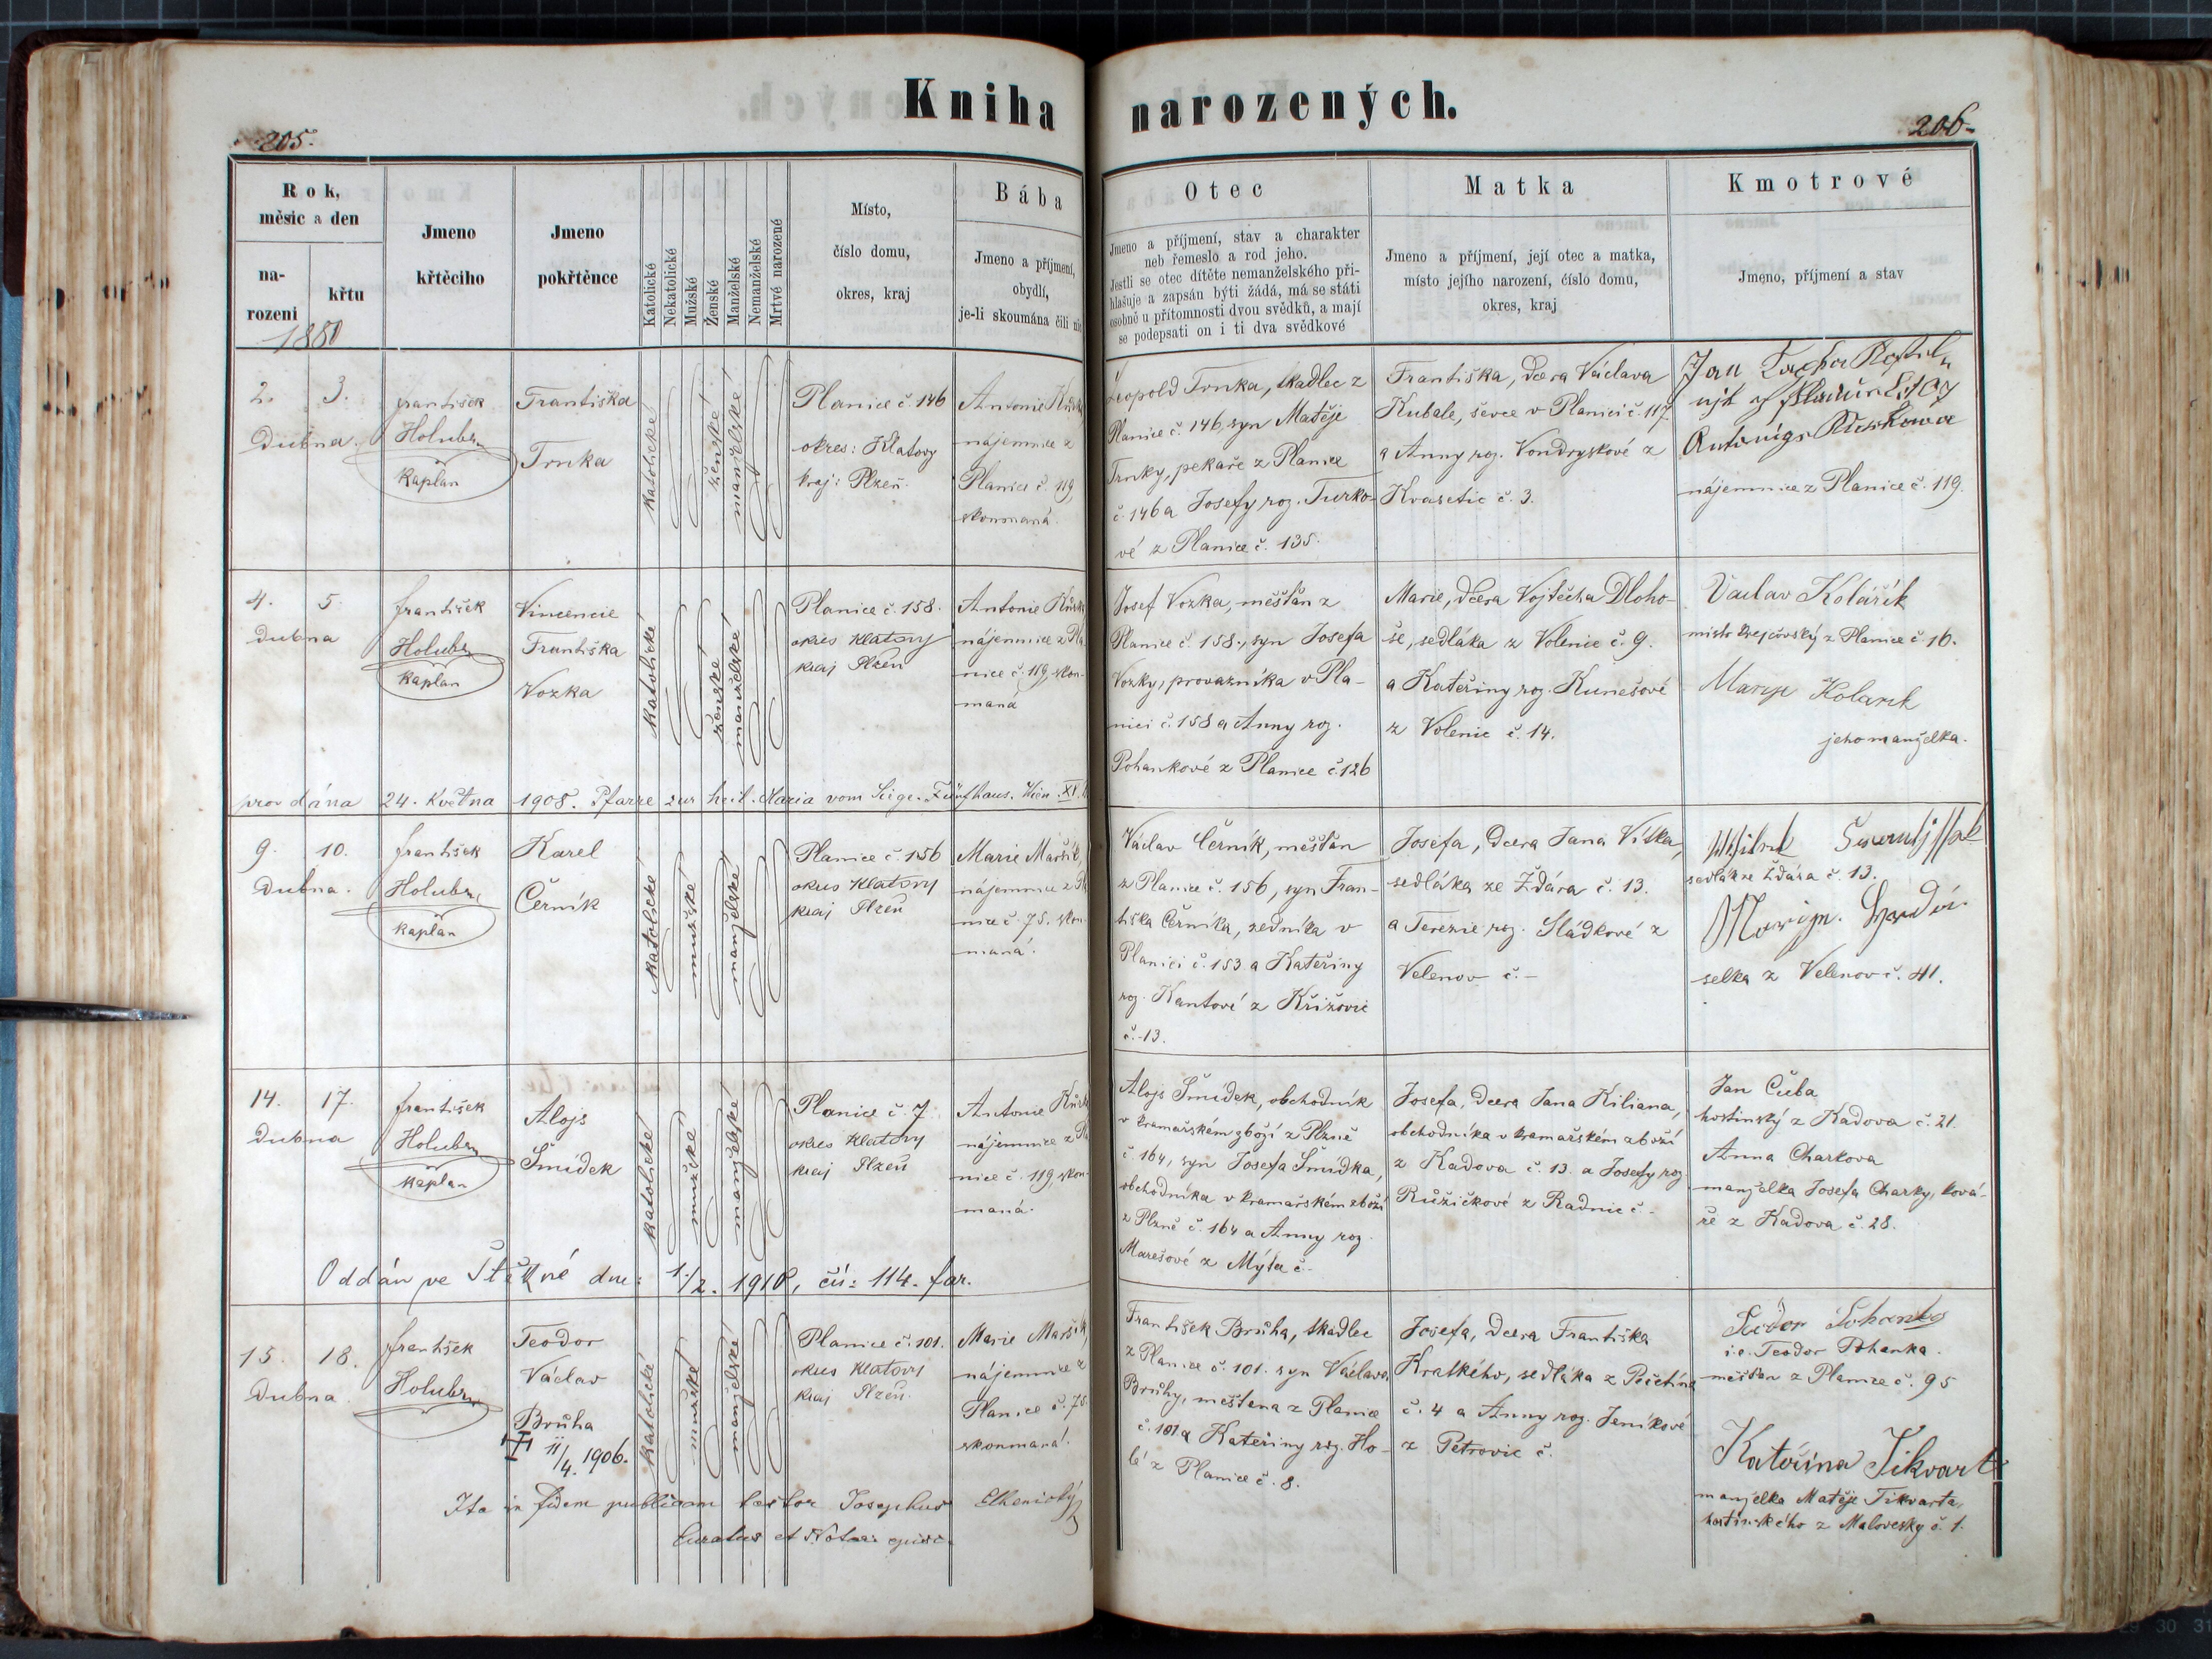 Kniha narozených.
205.
206.
Rok,
měsíc a den
na-
rozeni
křtu
1880
Jmeno
křtěcího
Jmeno
pokřtěnce
Katolické
Nekatolické
Mužské
Ženské
Manželské
Nemanželské
Mrtvě narozené
Místo,
číslo domu,
okres, kraj
Bába
Jmeno a příjmení,
obydlí,
je-li skoumána čili nic
Otec
Jmeno a příjmení, stav a charakter
neb řemeslo a rod jeho.
Jestli se otec dítěte nemanželského při-
hlašuje a zapsán býti žádá, má se státi
osobně u přítomnosti dvou svědků, a mají
se podepsati on i ti dva svědkové
Matka
Jmeno a příjmení, její otec a matka,
místo jejího narození, číslo domu,
okres, kraj
Kmotrové
Jmeno, příjmení a stav
2. 3.
Dubna.
František
Holub
Kaplan
Františka
Trnka
katolické
ženské
manželské
Planice č. 146
okres: Klatovy
kraj: Plzeň.
Antonie
nájemnice z
Planice č. 119,
skoumaná.
Leopold Trnka, tkadlec z
Planice č. 146, syn Matěje
Trnky, pekaře z Planice
č. 146 a Josefy roz. Turko-
vé z Planice č. 135.
Františka, dcera Václava
Kubale, ševce v Planici č. 117
a Anny roz. Vondryskové z
Kvasetic č. 3.
Jan
nájemnice z Planice č. 119.
4. 5.
Dubna
František
Holub
Kaplan
Vincencie
Františka
Vozka
katolické
ženské
manželské
Planice č. 158.
okres Klatovy
kraj Plzeň
Antonie
nájemnice z Pla
nice č. 119, skou-
maná
Josef Vozka, měšťan z
Planice č. 158., syn Josefa
Vozky, provazníka v Pla-
nici č. 158 a Anny roz.
Pohankové z Planice č. 126
Marie, dcera Vojtěcha Dloho-
še, sedláka z Volenic č. 9.
a Kateřiny roz. Kunešové
z Volenic č. 14.
Václav Kolářík
mistr krejčovský z Planice č. 16.
Marye Kolarik
jeho manželka.
provdána 24. Května 1908. Pfarre zur heil. Maria vom Siege. Fünfhaus. Wien. XV.
9. 10.
Dubna.
František
Holub
Kaplan
Karel
Černík
katolické
mužské
manželské
Planice č. 156
okres Klatovy
kraj Plzeň
Marie Maršík,
nájemnice z Pla
nice č. 75. skou-
maná.
Václav Černík, měšťan
z Planice č. 156, syn Fran-
tiška Černíka, zedníka v
Planici č. 153 a Kateřiny
roz. Kantové z Křižovic
č. 13.
Josefa, dcera Jana Vítka,
sedláka ze Ždára č. 13.
a Terezie roz. Sládkové z
Velenov č. -
sedlák ze Ždára č. 13.
selka z Velenov č. 41.
14. 17.
Dubna
František
Holub
Kaplan
Alojs
Šmídek
katolické
mužské
manželské
Planice č. 7
okres Klatovy
kraj Plzeň
Antonie
nájemnice z Pla
nice č. 119, skou-
maná.
Alojs Šmídek, obchodník
v kramářském zboží z Plzně
č 164, syn Josefa Šmídka,
obchodníka v kramářském zboží
z Plzně č. 164 a Anny roz.
Marešové z Mýta č. -
Josefa, dcera Jana Kiliana,
obchodníka v kramářském zboží
z Kadova č. 13. a Josefy roz
Růžičkové z Radnic č. -
Jan Čuba
hostinský z Kadova č. 21.
Anna Charkova
manželka Josefa Charky, ková-
ře z Kadova č. 28.
Oddán ve Štěkné dne: 1./2. 1910, čís: 114. far.
15. 18.
Dubna.
František
Holub
Teodor
Václav
Brůha
11/4. 1906.
katolické
mužské
manželské
Planice č. 101.
okres Klatovy
kraj Plzeň
Marie Maršík,
nájemnice z
Planice č. 75.
skoumaná.
František Brůha, tkadlec
z Planice č. 101. syn Václava
Brůhy, měšťana z Planice
č. 101 a Kateřiny roz. Ho-
lé z Planice č. 8.
Josefa, dcera Františka
Kratkého, sedláka z Pečetína
č. 4 a Anny roz. Jeníkové
z Petrovic č.
i. e. Teodor Pohanka.
měšťan z Planice č. 95
Kateřina Tikvart
manželka Matěje Tikvarta,
hostinského z Malovesky č. 1.
Ita in fidem publicam testor Josephus
Curatus et Notar: